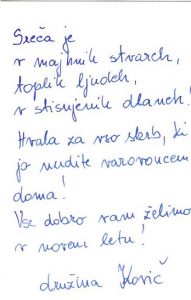 Sreča je
v majhnih stvareh,
toplih ljudeh,
v stisnjenih dlaneh!
Hvala za vso skrb, ki
jo nudite varovancem
doma!
Vse dobro vam želimo
v novem letu!
družina Kovič